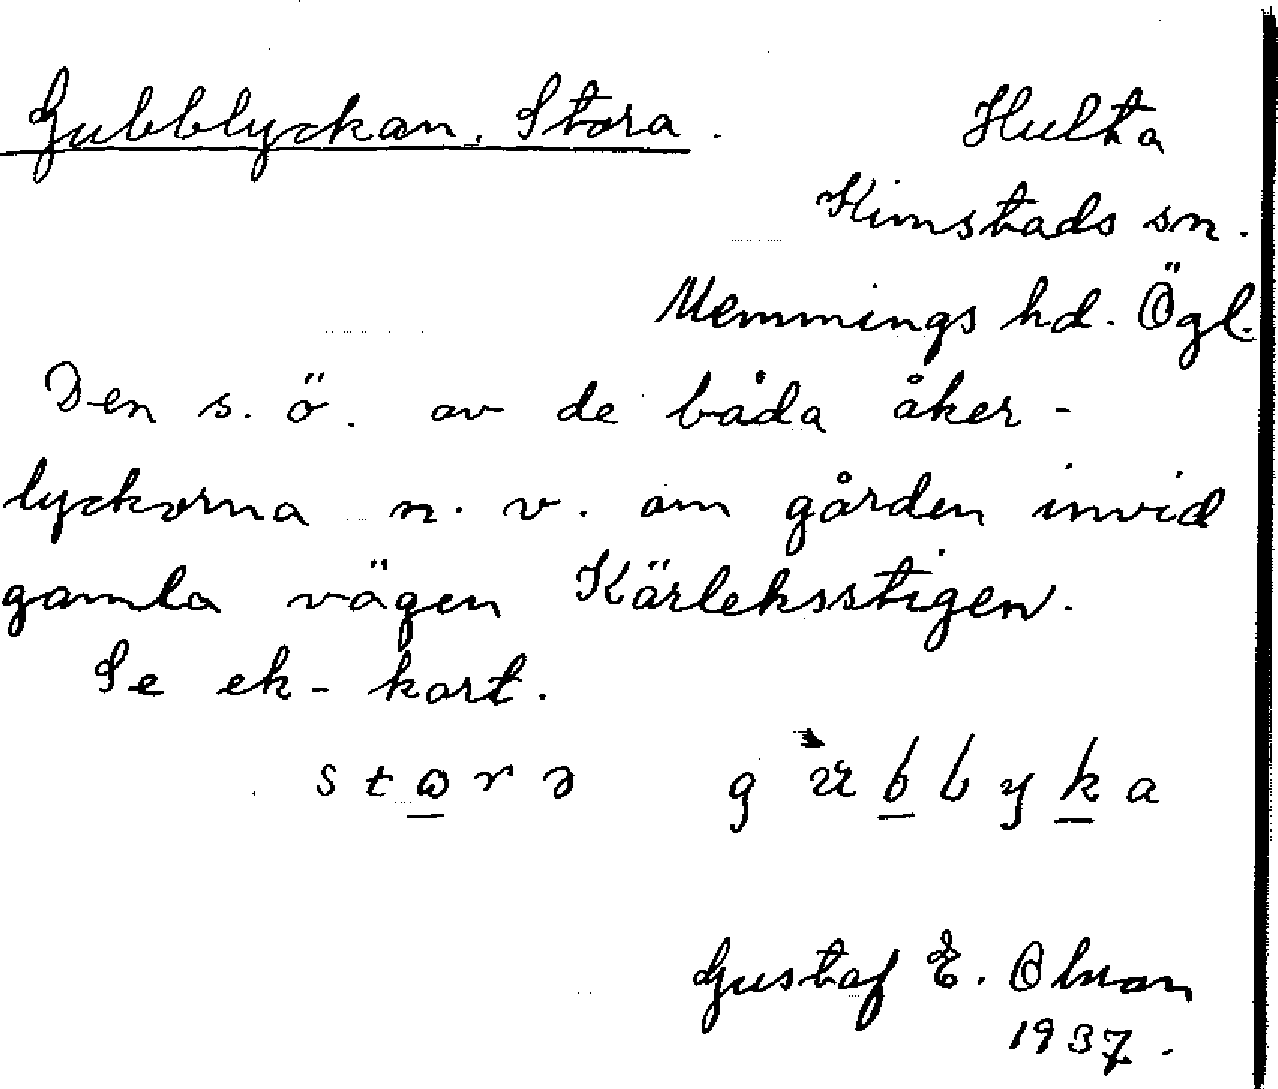 Gubblyckan, Stora. Hulta
Kimstads sn.
Memmings hd. Ögl.
Den s. ö. av de båda åker-
lyckorna n. v. om gården invid
gamla vägen Kärleksstigen.
Se ek-kart.
Gustaf E.
1937.